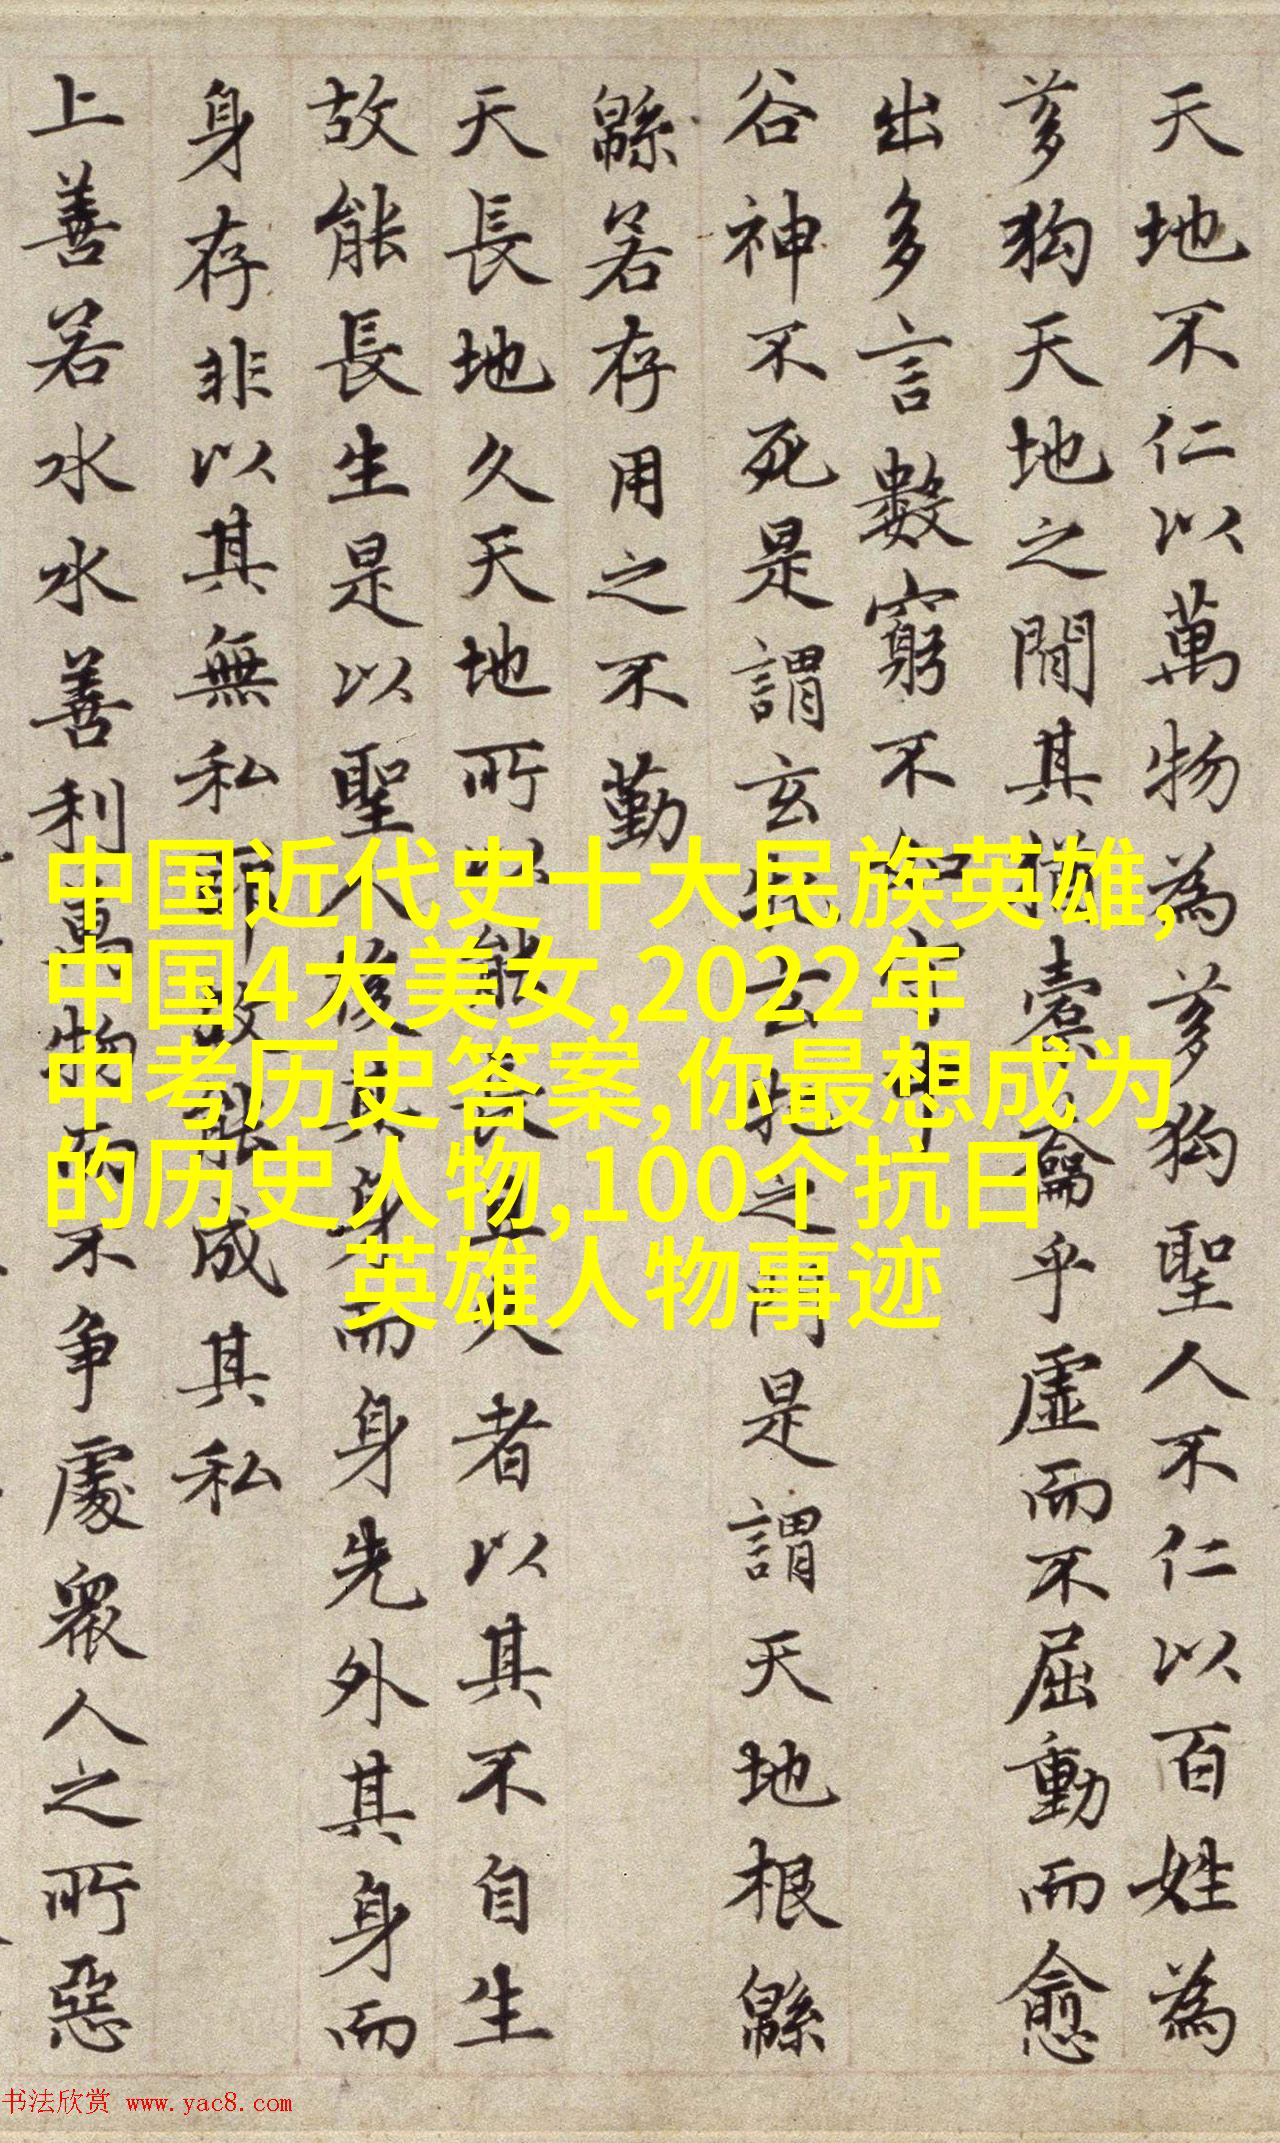 天地不仁以萬物為芻狗聖人不仁以百姓為
芻狗天地之間其猶橐龠乎虛而不屈動而愈
出多言數窮不如守中
谷神不死是謂玄牝玄牝之門是謂天地根緜
緜若存用之不勤
天長地久天地所以能長且久者以其不自生
故能長生是以聖人後其身而身先外其身而
身存非以其無私耶故能成其私
上善若水水善利萬物而不争處衆人之所惡
中国近代史十大民族英雄,
中国4大美女,2022年
中考历史答案,你最想成为
的历史人物,100个抗日
英雄人物事迹
书法欣赏 www.yac8.com